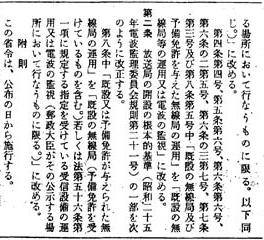 る場所において行なうものに限る。以下同
じ。）」に改める。
第四条第四号、第五条第六号、第六条第六号、
第六条の二第五号、第六条の三第七号、第七条
第三号及び第八条第五号中「既設の無線局及び
予備免許を与えた無線局の運用」を「既設の無
線局等の運用又は電波の監視」に改める。
第二条　放送局の開設の根本的基準（昭和二十五
年電波監理委員会規則第二十一号）の一部を次
のように改正する。
第八条中「既設又は予備免許が与えられた無
線局の運用」を「既設の無線局（予備免許を受
けているものを含む。）若しくは法第五十六条第
一項に規定する指定を受けている受信設備の運
用又は電波の監視（郵政大臣がその公示する場
所において行なうものに限る。）」に改める。
附　則
この省令は、公布の日から施行する。